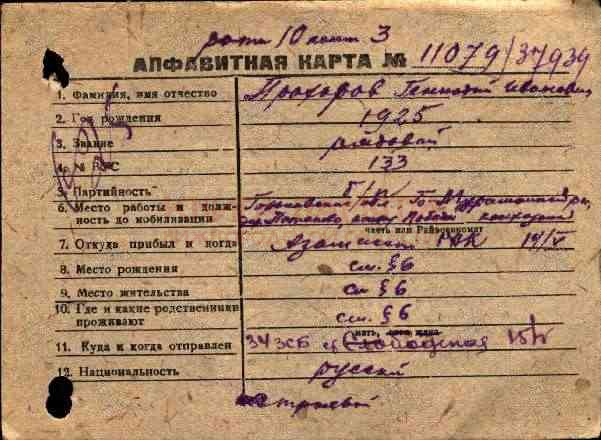 рота 10 пент 3
АЛФАВИТНАЯ КАРТА № 11079/37939
1. Фамилия, имя отчество Прохоров Геннадий Иванович
2. Год рождения 1925
3. Звание рядовой
4. № ВУС 133
5. Партийность б/п
6. Место работы и долж-
ность до мобилизации колхозник
часть или Райвоенкомат
7. Откуда прибыл и когда РВК 14/V
8. Место рождения см. §6
9. Место жительства см §6
10. Где и какие родственники
проживают см. §6
мать, отец, жена
11. Куда и когда отправлен 34 ЗСБ г. Слободская
12. Национальность русский
строевой